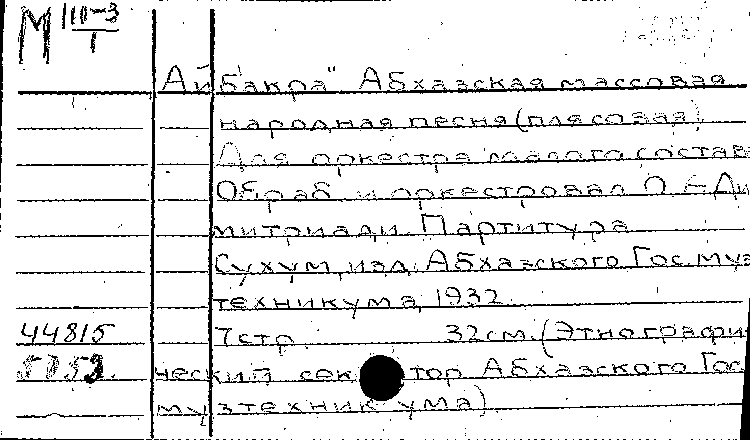 М III-3
1
Айбакра" Абхазская массовая
народная песня (плясовая)
Для оркестра малого состав
Обраб. и оркестровал О. Е. Ди
митриади. Партитура
Сухум, изд. Абхазского Гос. муз
техникума, 1932.
44815 7 стр. 32 см. (Этнографи
5753. ческий сектор Абхазского Гос.
музтехникума)